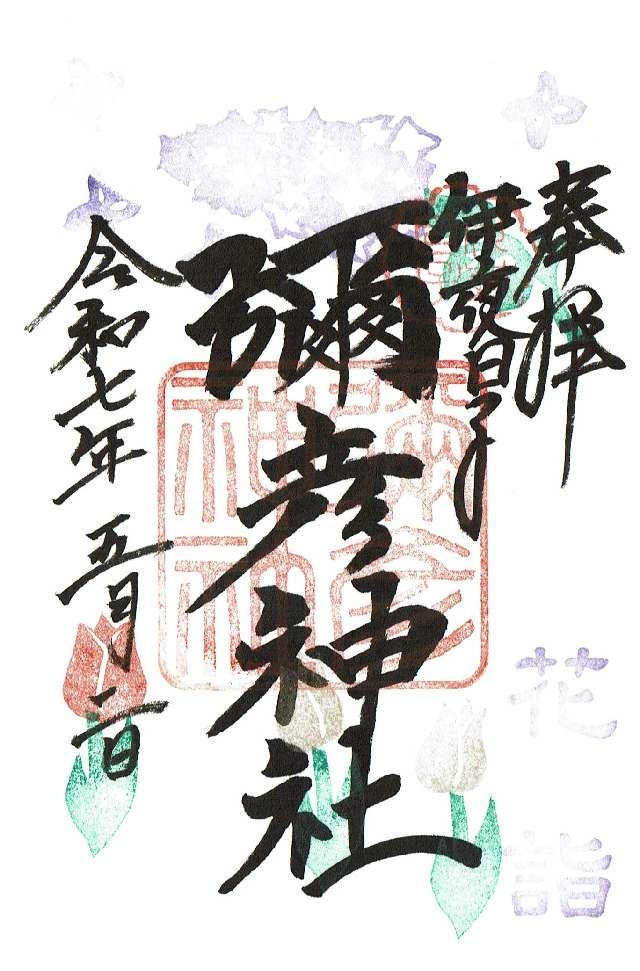 奉拝
伊夜日子
彌彦神社
令和七年五月二日
花詣